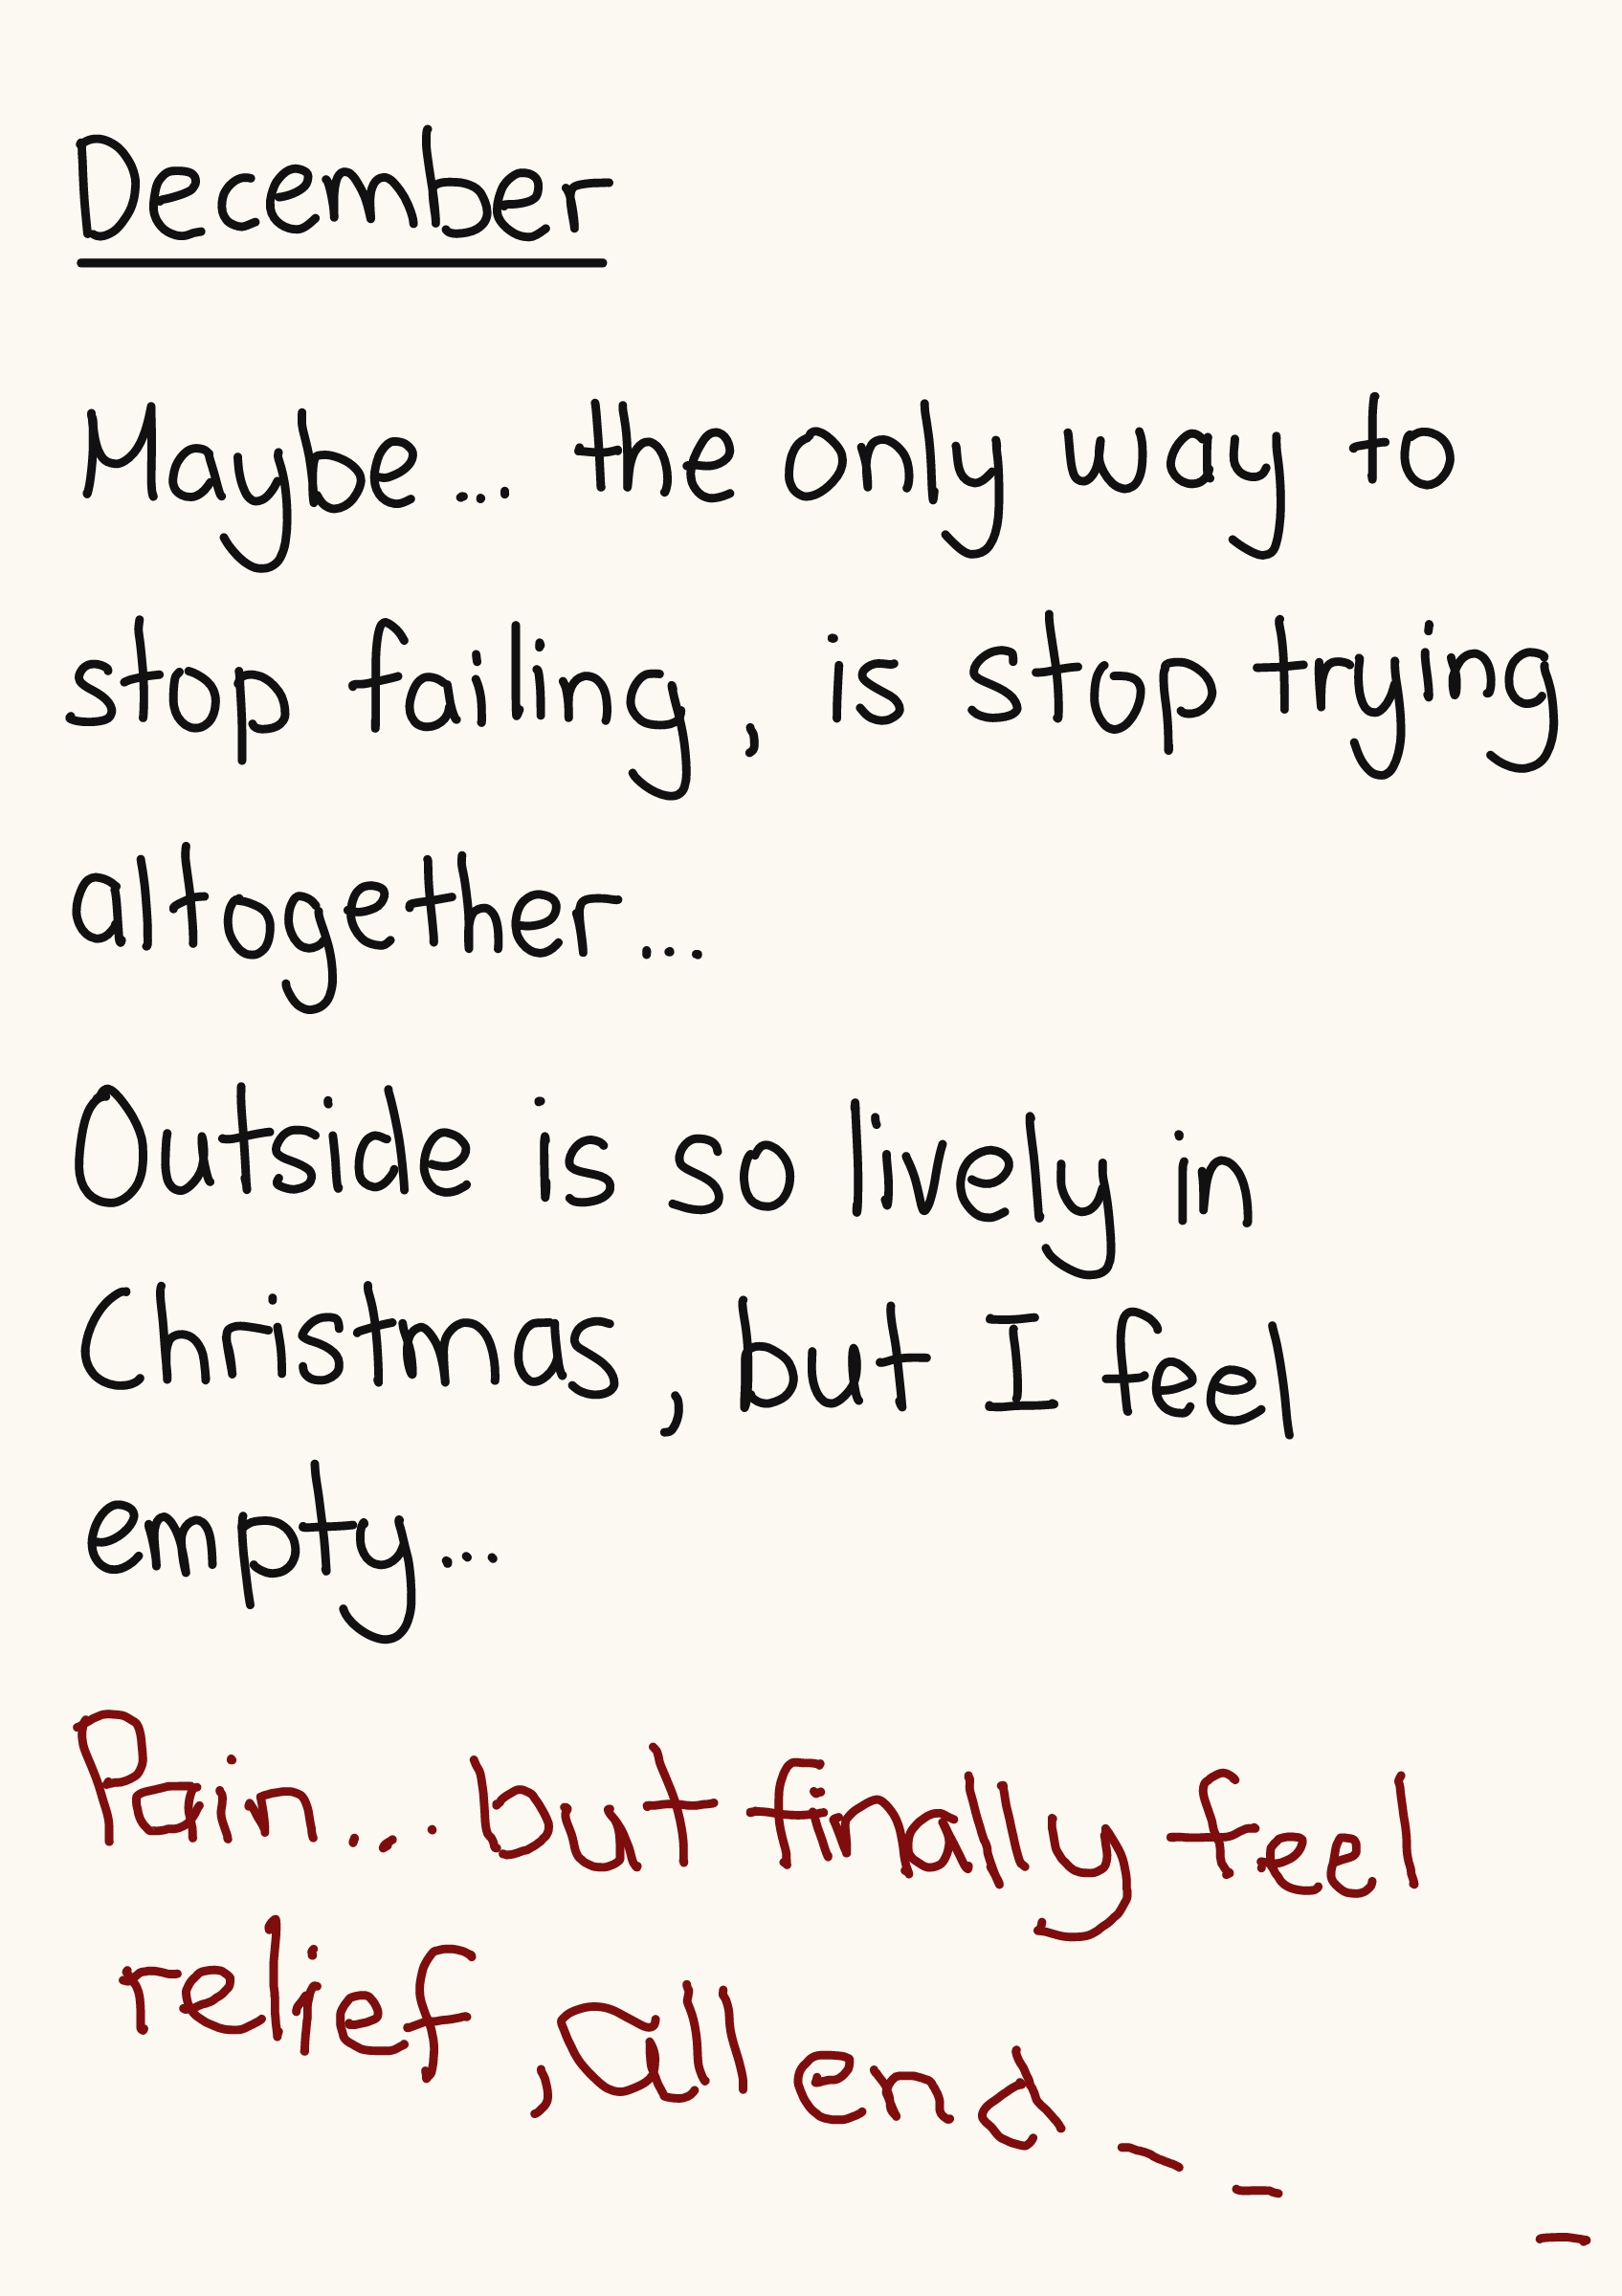 December
Maybe... the only way to
stop failing, is stop trying
altogether...
Outside is so lively in
Christmas, but I feel
empty...
Pain... but finally feel
relief, all end _ _
_